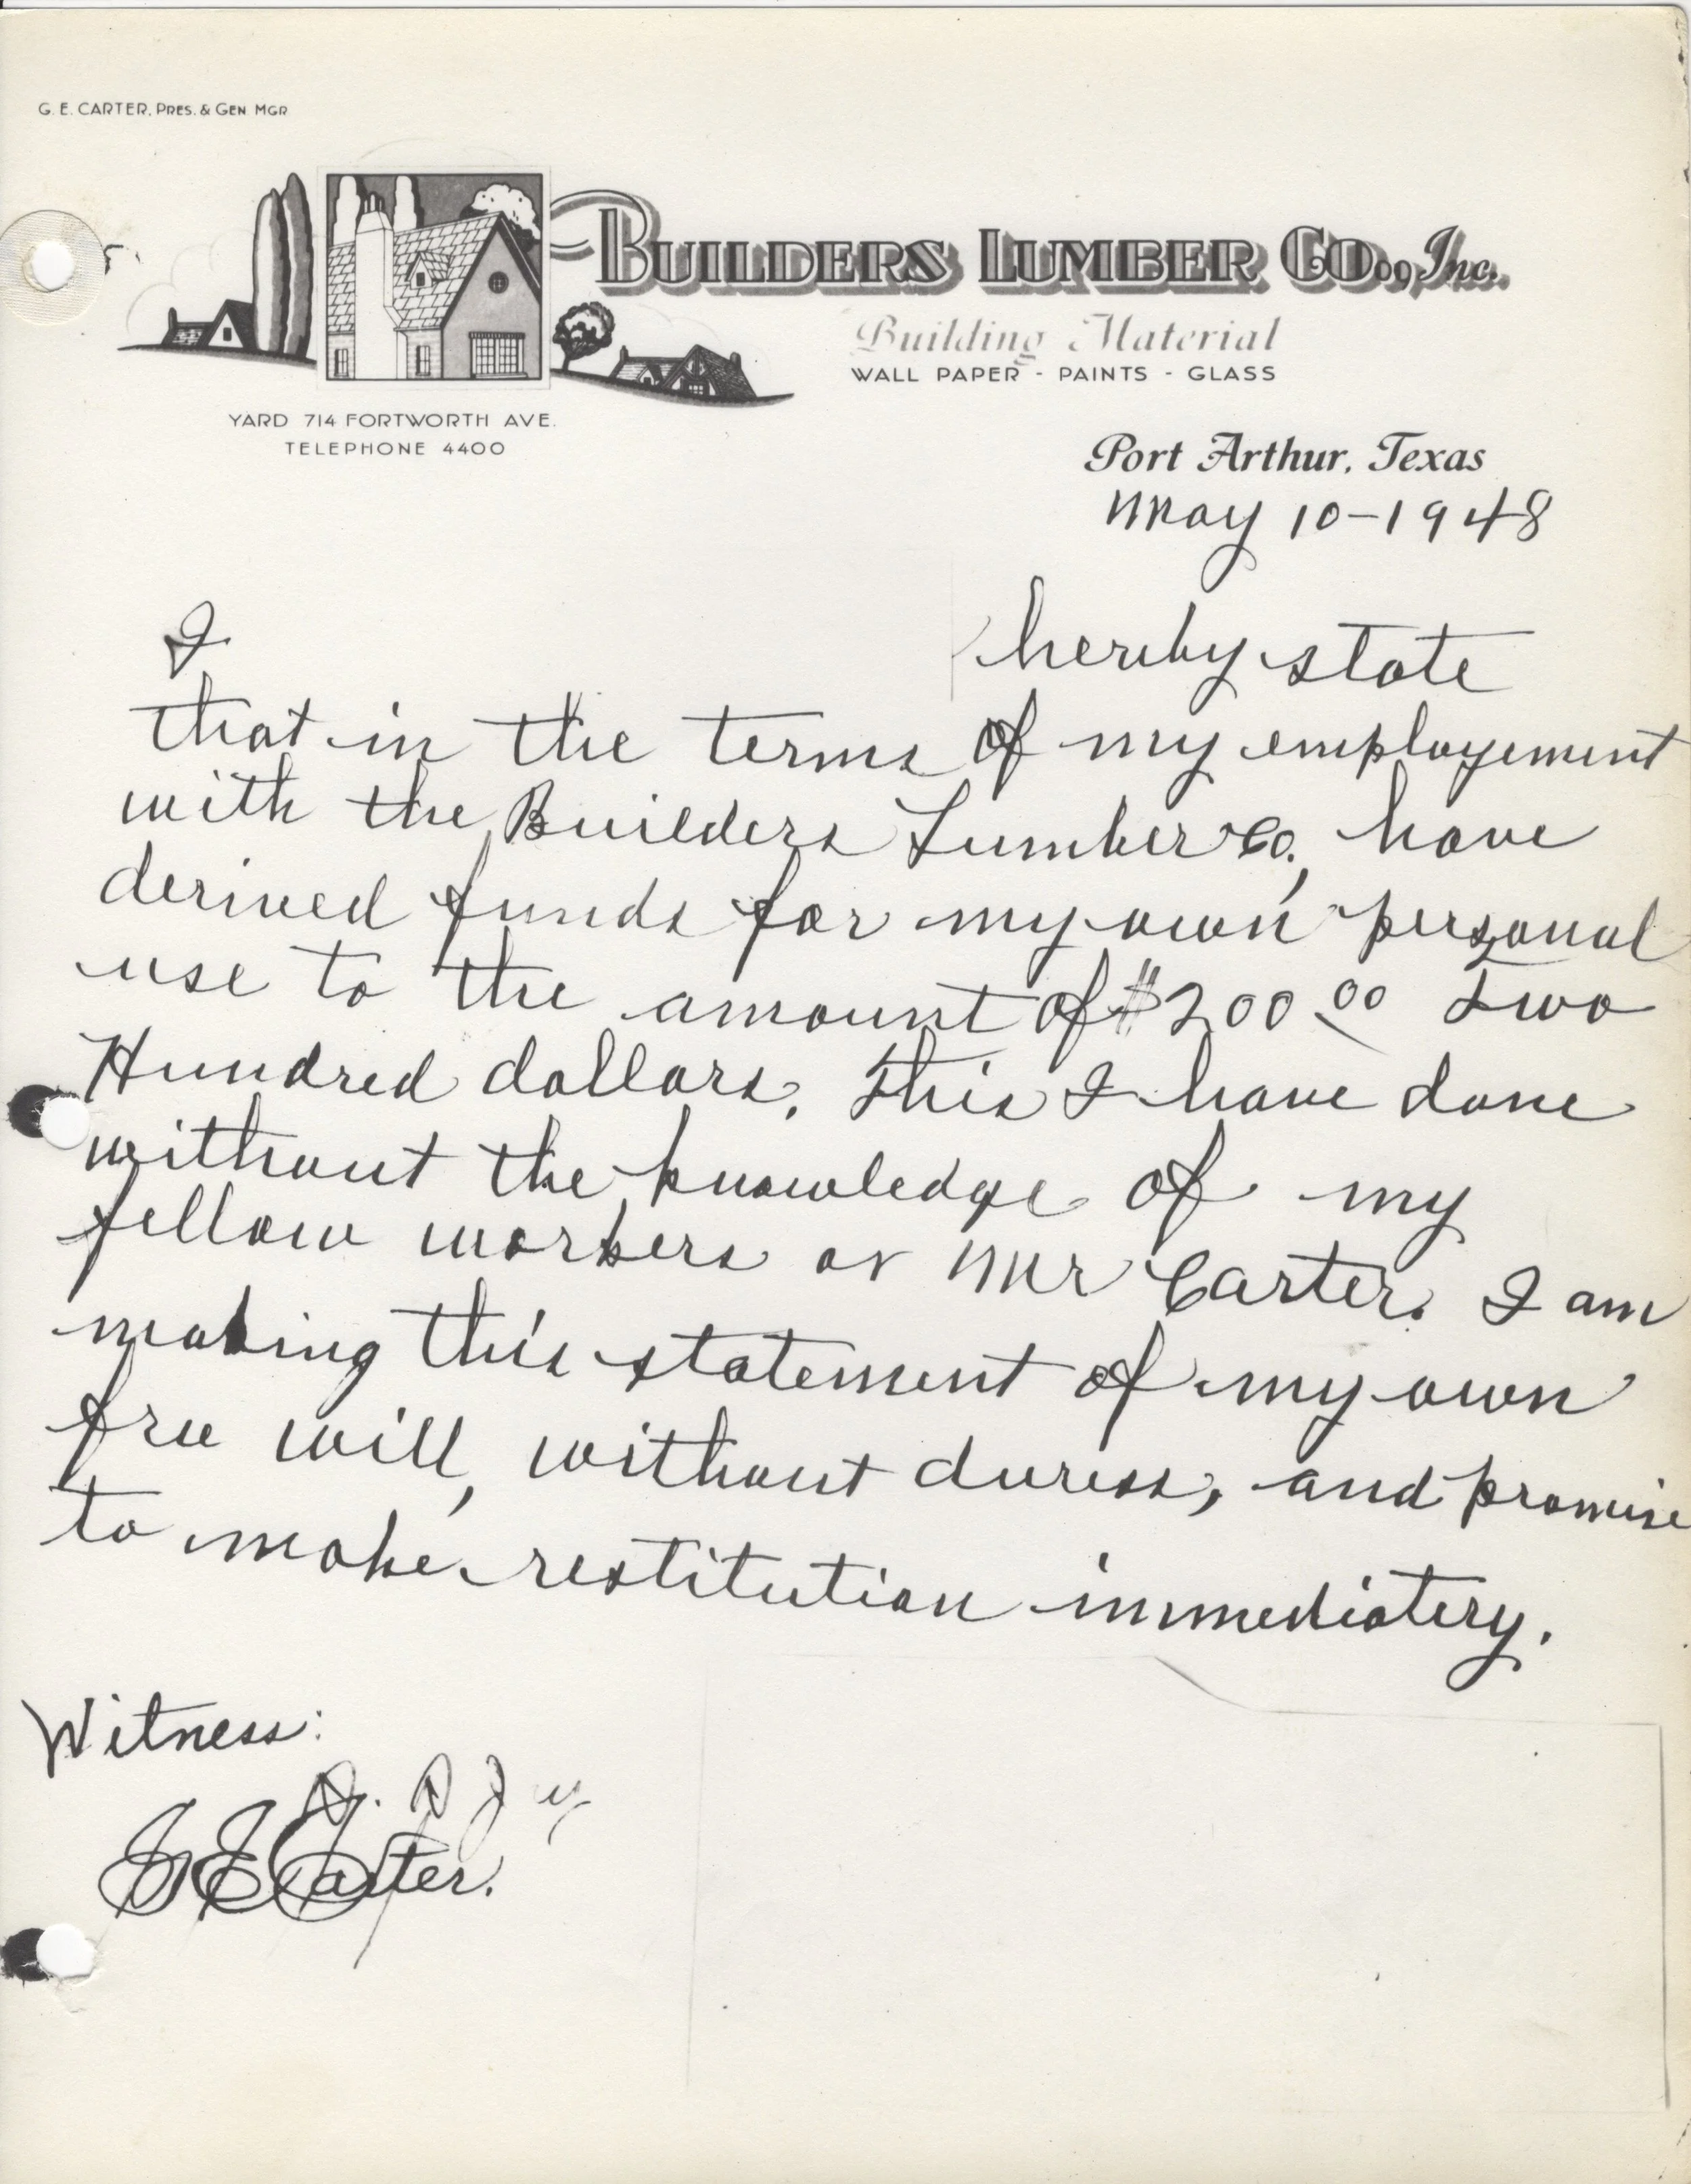 G. E. CARTER, PRES. & GEN MGR
BUILDERS LUMBER CO., Inc.
Building Material
WALL PAPER - PAINTS - GLASS
YARD 714 FORTWORTH AVE.
TELEPHONE 4400
Port Arthur, Texas
May 10-1948
I hereby state
that in the terms of my employement
with the Builders Lumber Co., have
derived funds for my own personal
use to the amount of $200.00 Two
Hundred dollars. This I have done
without the knowledge of my
fellow workers or Mr Carter. I am
making this statement of my own
free will, without duress, and promise
to make restitution immediatery.
Witness:
G E Carter.